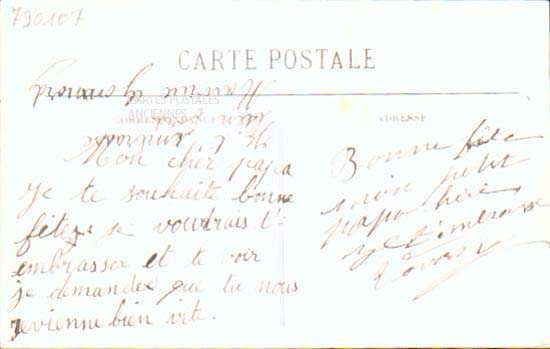 790107
CARTE POSTALE
CARTES POSTALES
ANCIENNES
ADRESSE
Mon cher papa
je te souhaite bonne
fête je voudrais t'-
embrasser et te voir
je demande que tu nous
revienne bien vite.
Bonne fête
mon petit
papa chéri
je t'embrasse